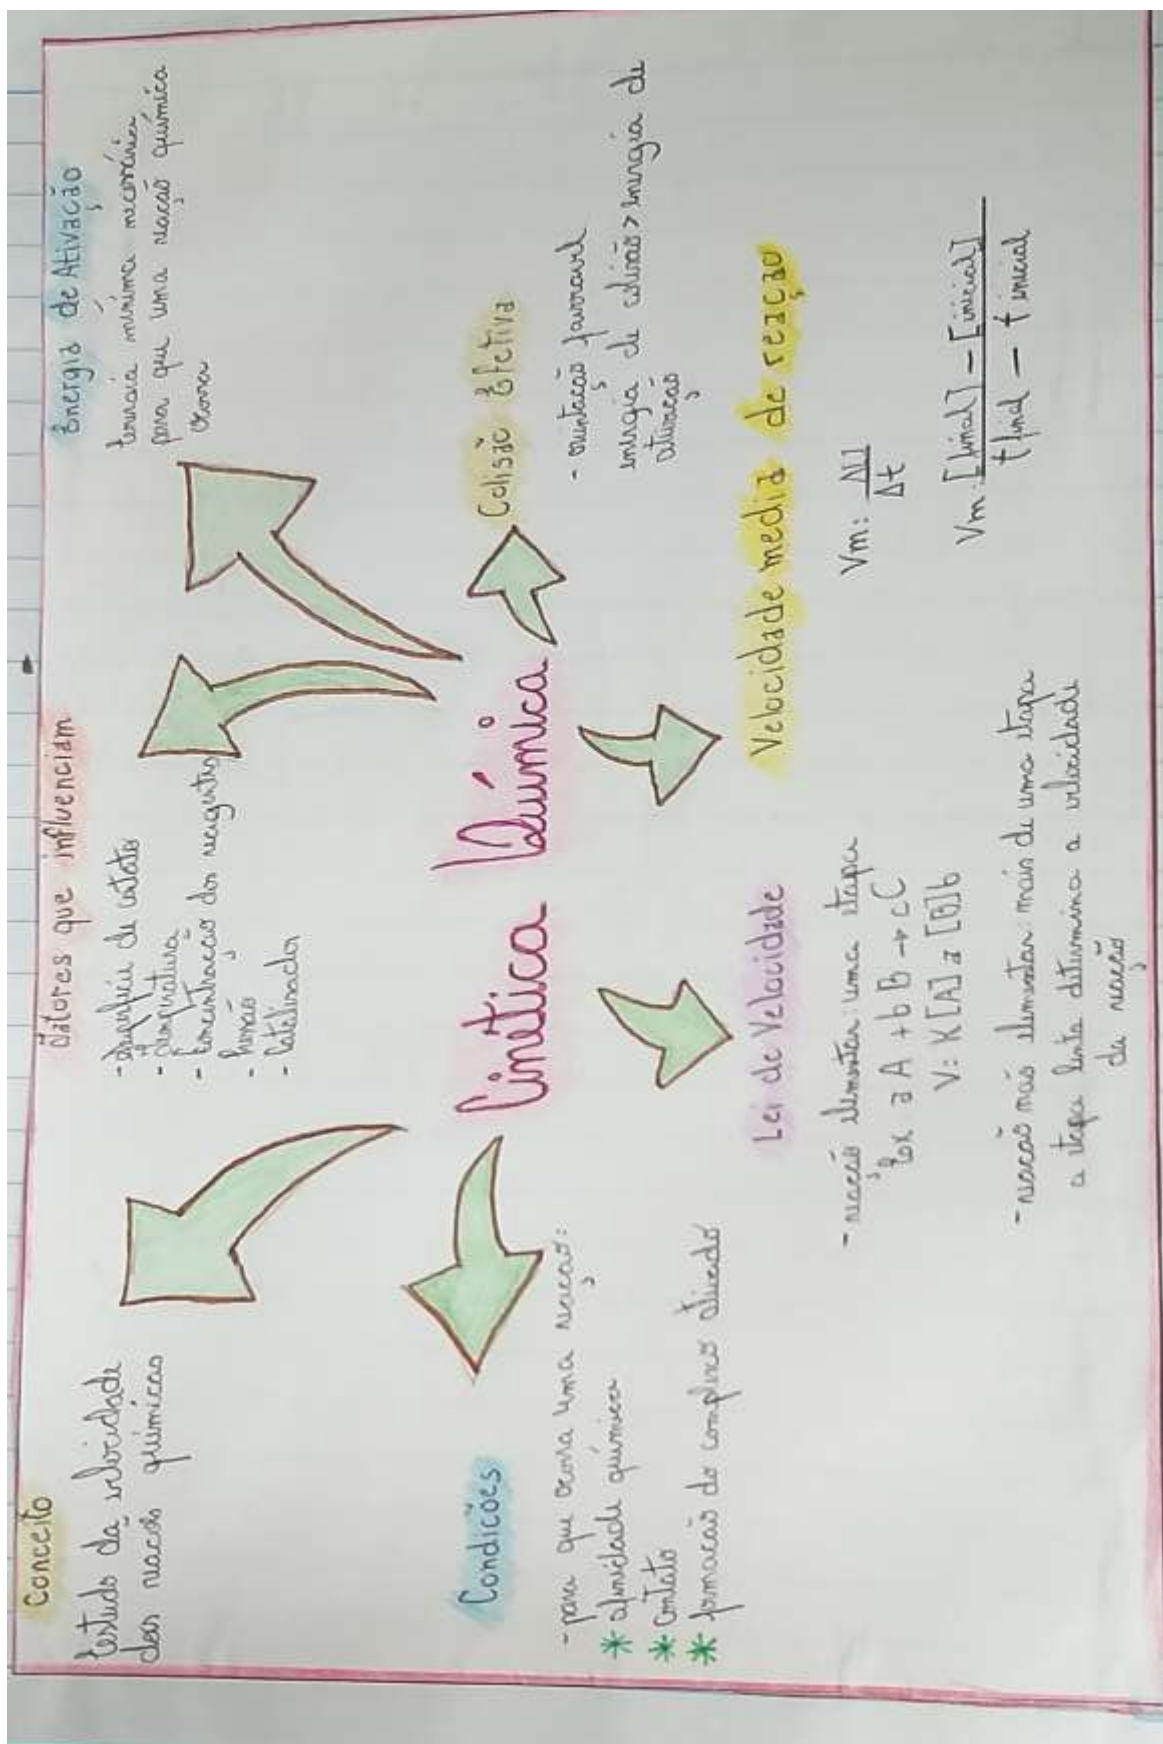 Conceito
Estudo da velocidade
das reacões químicas
Fatores que influenciam
- Superfície de contato
- temperatura
- Concentração dos reagentes
- Pressão
- Catalisador
Energia de Ativação
Energia mínima necessária
para que uma reação química
ocorra
Cinética Química
Condicões
- para que ocorra uma reação:
* afinidade química
* Contato
* formacão do complexo ativado
Colisão Efetiva
- orientação favoravel
energia de colisão > energia de
ativação
Lei de Velocidade
- reação elementar: uma etapa
Ex a A + b B → c C
V: K [A] a [B] b
- reacão não elementar: mais de uma etapa
a etapa lenta determina a velocidade
da reação
Velocidade media de reação
Vm: Δ[]
Δt
Vm: [final] - [inicial]
t final - t inicial